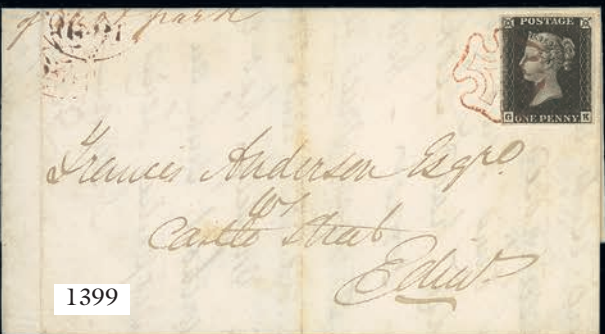 park
POSTAGE
G K
ONE PENNY
Francis Anderson Esqre
Castle Street
Edinr
1399